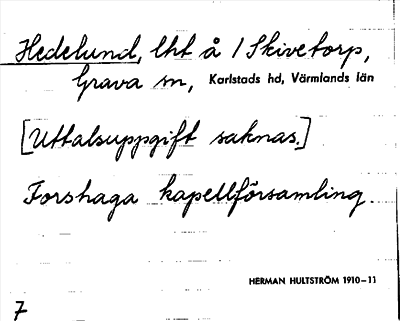 Hedelund, lht å 1 Skivetorp,
Grava sn, Karlstads hd, Värmlands län
[Uttalsuppgift saknas.]
Forshaga kapellförsamling.
HERMAN HULTSTRÖM 1910–11
7